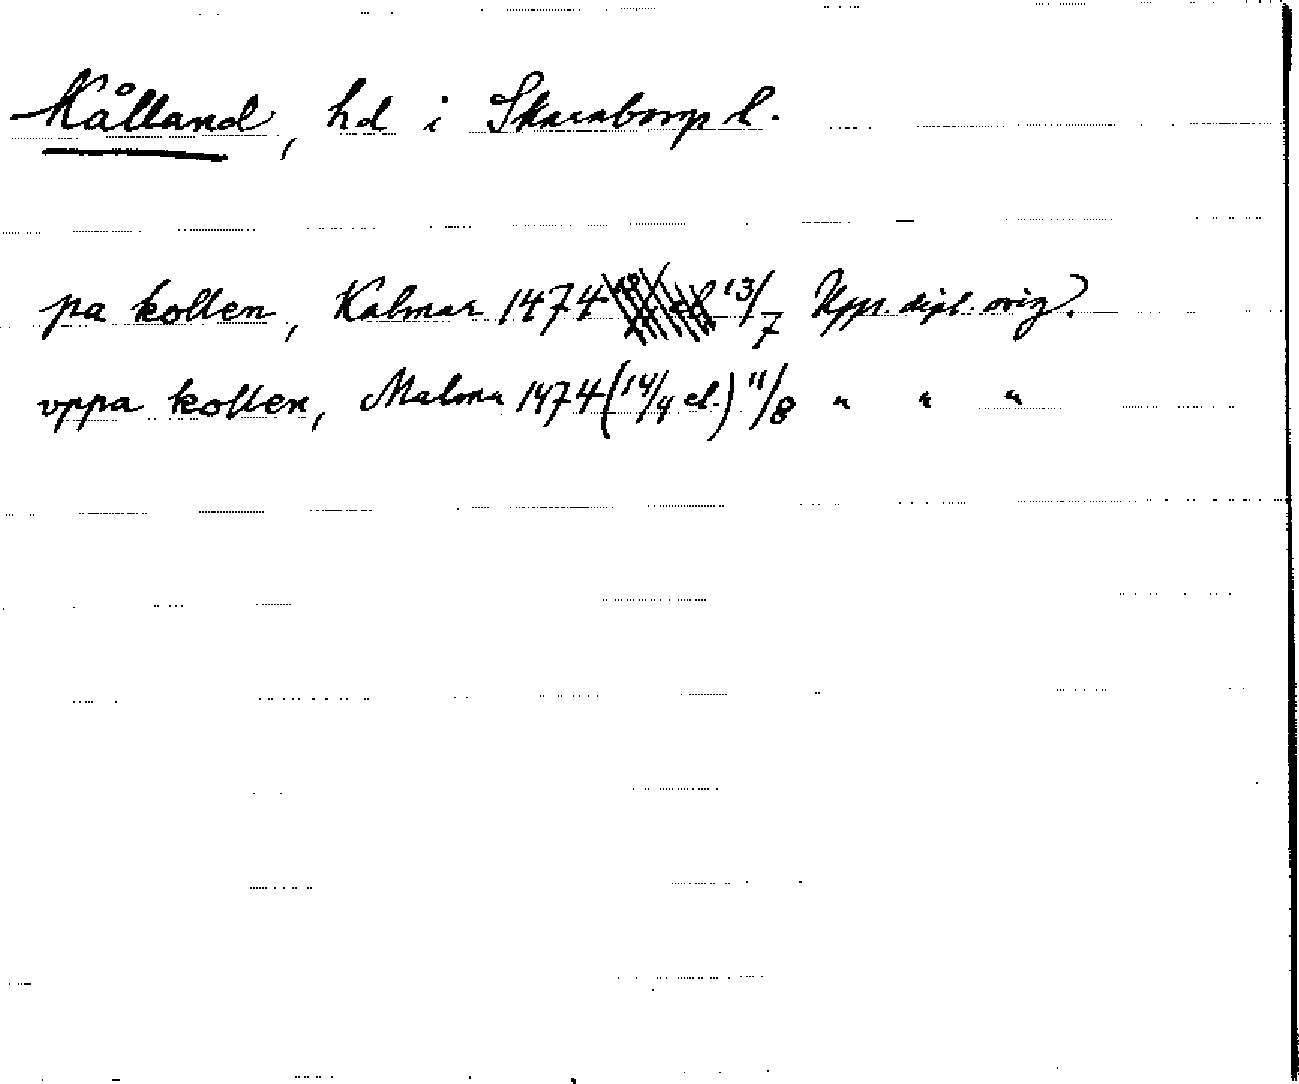 Kålland, hd i Skaraborgs l.
pa kollen, Kalmar 1474 13/7 Upps. dipl. orig.?
vppa kollen, Malma 1474 (14/4 el.) 11/8 " " "